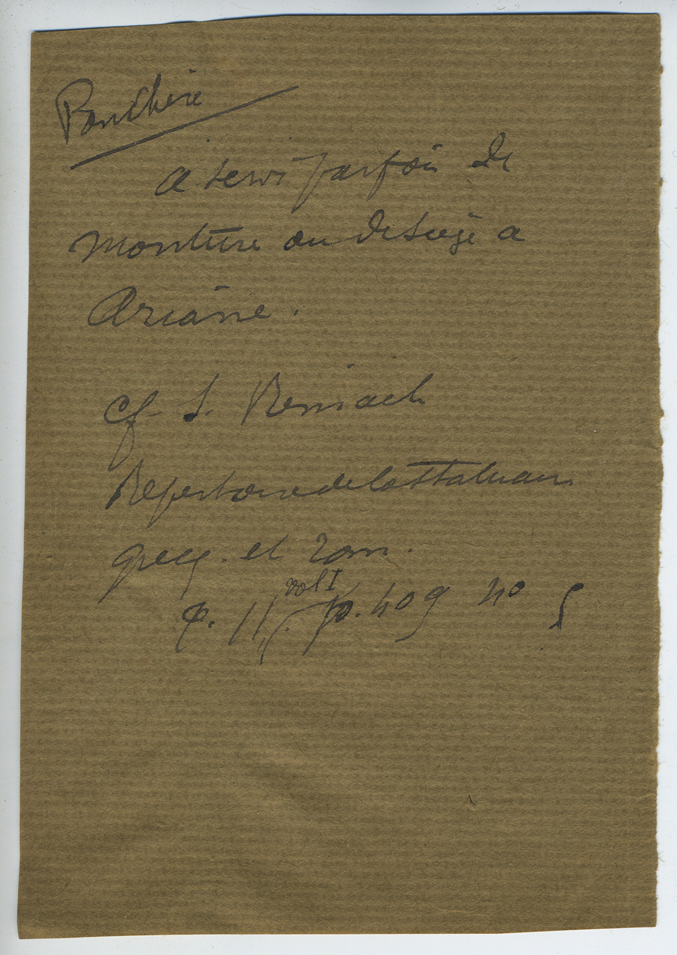 Panthère
a servi parfois de
monture ou de siège a
Ariane.
cf. S. Reinach
Repertoire de la Statuaire
grecq. et rom.
vol I
p. 409 no 5